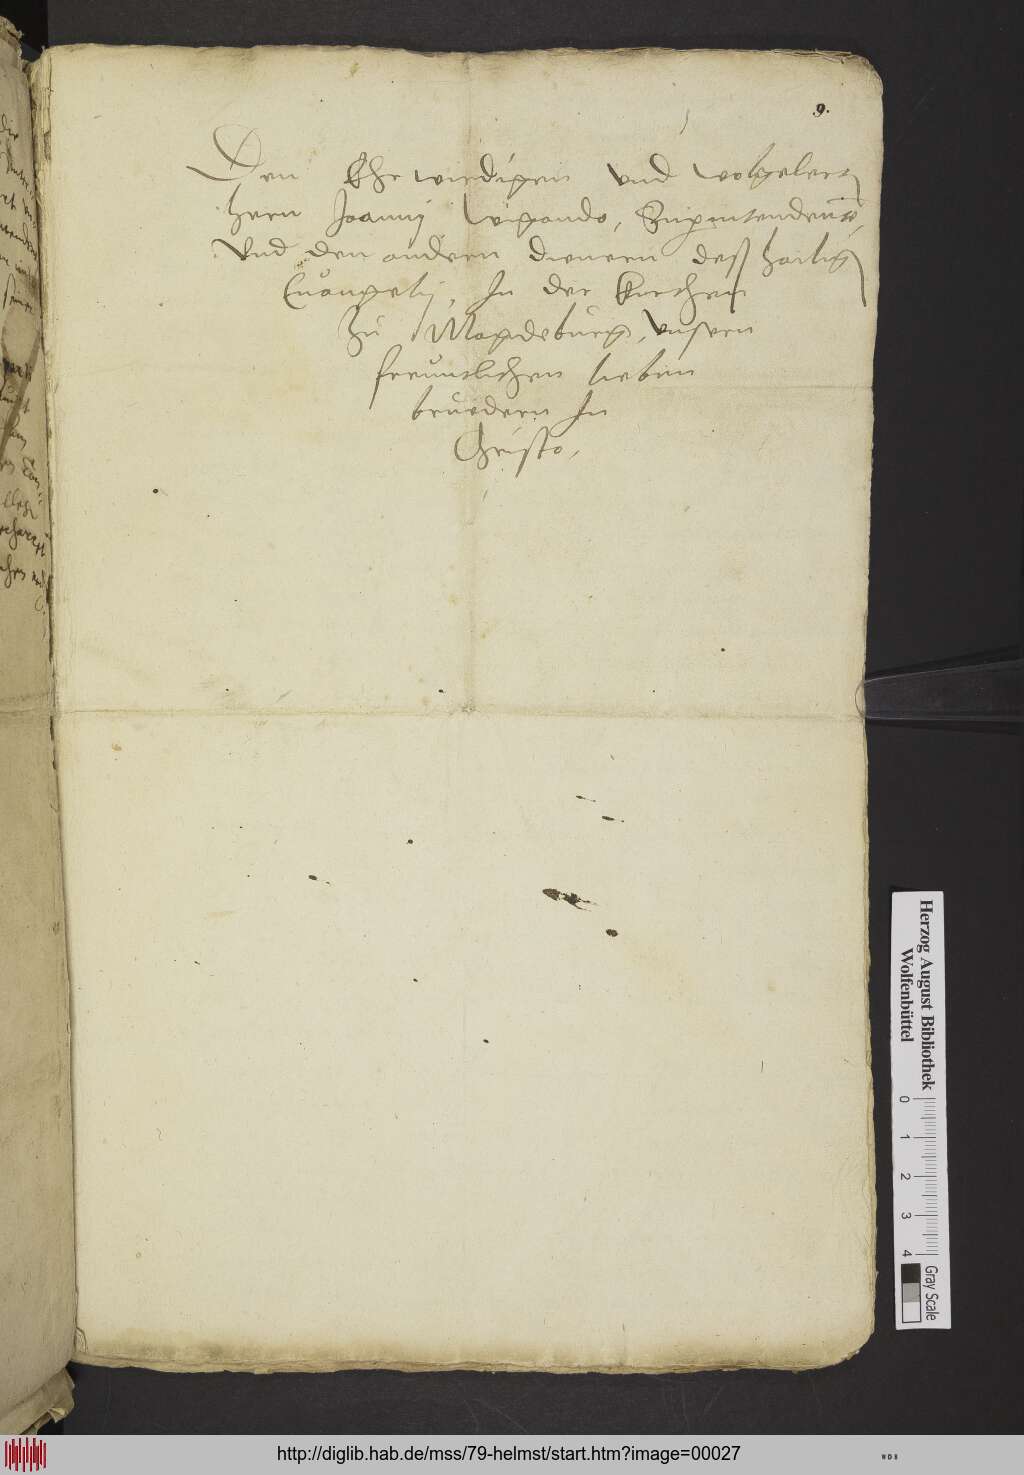 9.
Den Ehrwirdigen vnd wolgelert
hern Joanni Wigando, Supintendente,
Vnd den andern dienern deß hailig
Euangelij, In der Kirchen
zu Magdeburg, vnsern
freuntlichen lieben
bruedern In
Christo,
Herzog August Bibliothek
Wolfenbüttel
0 1 2 3 4
Gray Scale
http://diglib.hab.de/mss/79-helmst/start.htm?image=00027
WDB